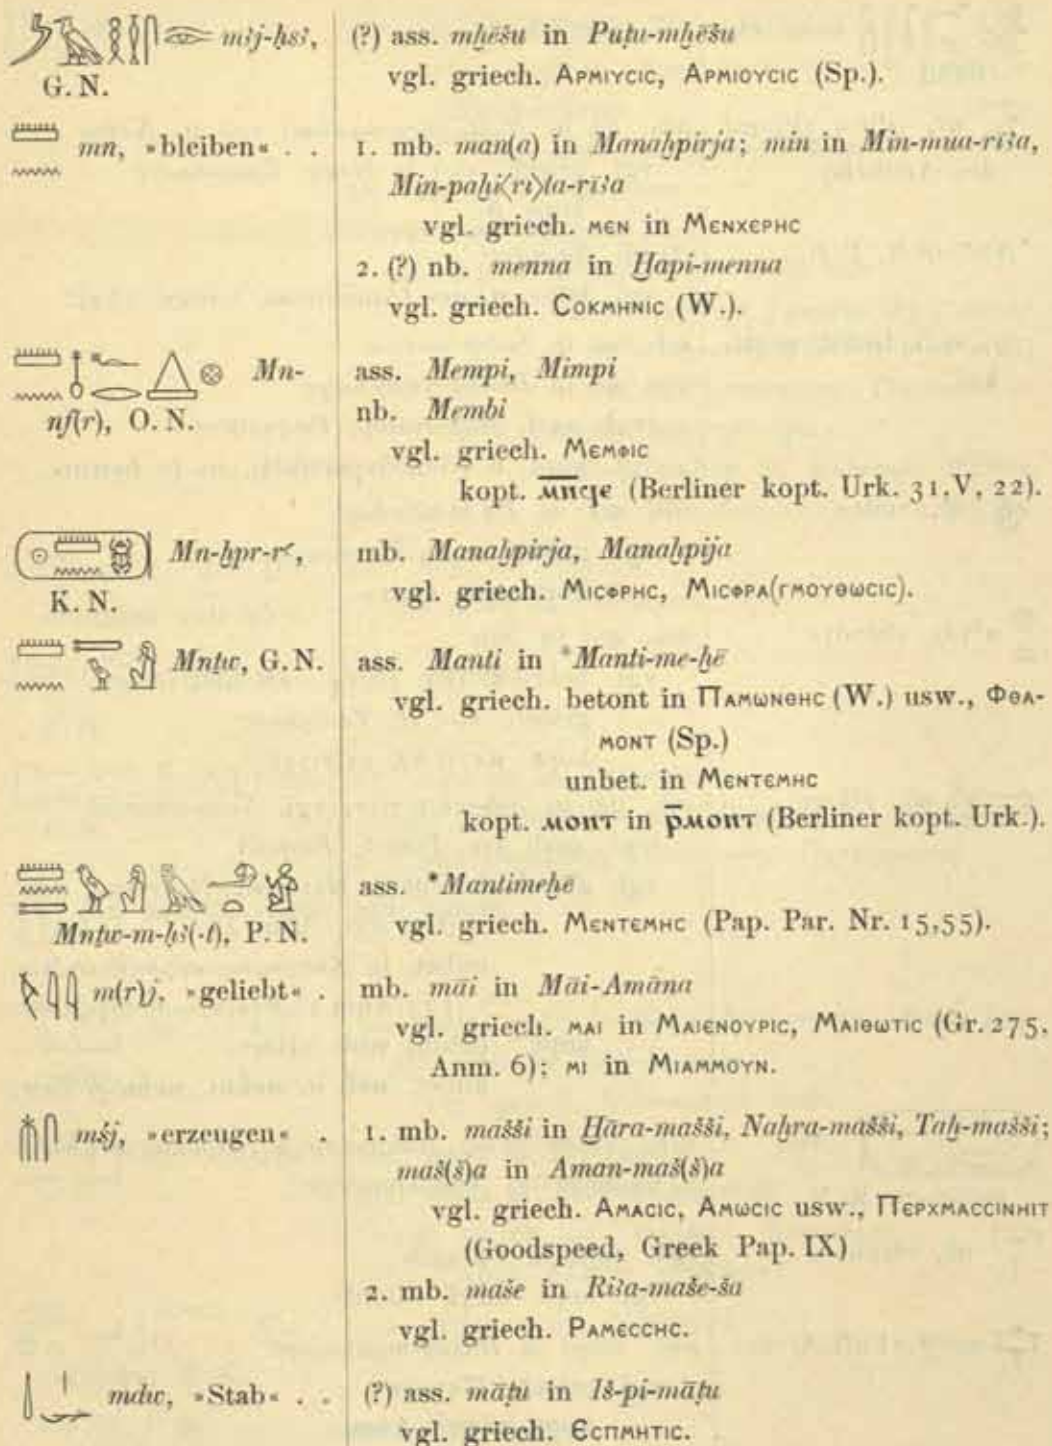 mꜣj-ḥsꜣ, (?) ass. mḫēšu in Puṭu-mḫēšu
G. N. vgl. griech. Αρμιυσις, Αρμιουσις (Sp.).
mn, »bleiben« . . 1. mb. man(a) in Manaḫpirja; min in Min-mua-rīꜣa,
Min-paḫi⟨ri⟩ta-rīꜣa
vgl. griech. μεν in Μενχερης
2. (?) nb. menna in Ḫapi-menna
vgl. griech. Σοκμηνις (W.).
Mn- ass. Mempi, Mimpi
nf(r), O. N. nb. Membi
vgl. griech. Μεμφις
kopt. ⲙ̅ⲛ̅ϥⲉ (Berliner kopt. Urk. 31. V, 22).
Mn-ḫpr-rꜥ, mb. Manaḫpirja, Manaḫpija
K. N. vgl. griech. Μισφρης, Μισφρα(γμουθωσις).
Mnṯw, G. N. ass. Manti in *Manti-me-ḫē
vgl. griech. betont in Παμωνθης (W.) usw., Φθα-
μοντ (Sp.)
unbet. in Μεντεμης
kopt. ⲙⲟⲛⲧ in ⲣ̅ⲙⲟⲛⲧ (Berliner kopt. Urk.).
ass. *Mantimeḫē
Mnṯw-m-ḥꜣ(·t), P. N. vgl. griech. Μεντεμης (Pap. Par. Nr. 15,55).
m(r)j, »geliebt« . mb. māi in Māi-Amāna
vgl. griech. μαι in Μαιενουρις, Μαιθωτις (Gr. 275.
Anm. 6); μι in Μιαμμουν.
mśj, »erzeugen« . 1. mb. mašši in Ḫāra-mašši, Naḫra-mašši, Taḫ-mašši;
maš(š)a in Aman-maš(š)a
vgl. griech. Αμασις, Αμωσις usw., Περχμασσινηιτ
(Goodspeed, Greek Pap. IX)
2. mb. maše in Riꜣa-maše-ša
vgl. griech. Ραμεσσης.
mdw, »Stab« . . (?) ass. māṭu in Iš-pi-māṭu
vgl. griech. Εσπμητις.